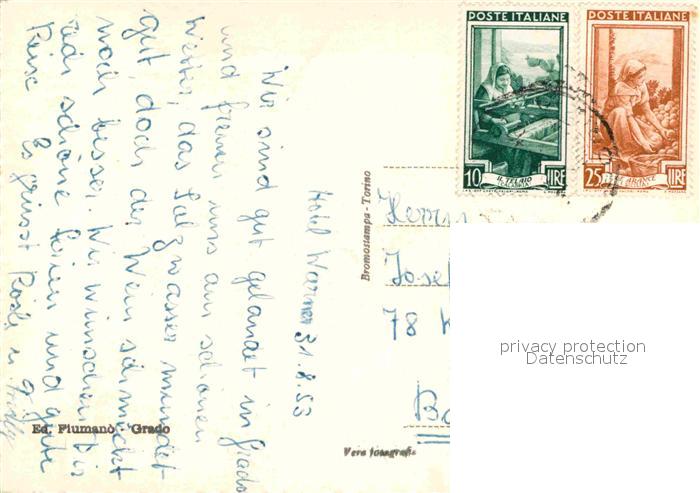 Hotel Warner 31.8.53
Wir sind gut gelandet in Grado
und freuen uns am schönen
Wetter, das Salzwasser mundet
gut, doch der Wein schmeckt
noch besser. Wir wünschen Dir
recht schöne Ferien und gute
Reise
Es grüsst Rösli u.
Ed. Fiumanò - Grado
Bromostampa - Torino
Vera fotografia
POSTE ITALIANE
10 LIRE
IL TELAIO
POSTE ITALIANE
25 LIRE
LE ARANCE
Herrn
Josef
78
privacy protection
Datenschutz